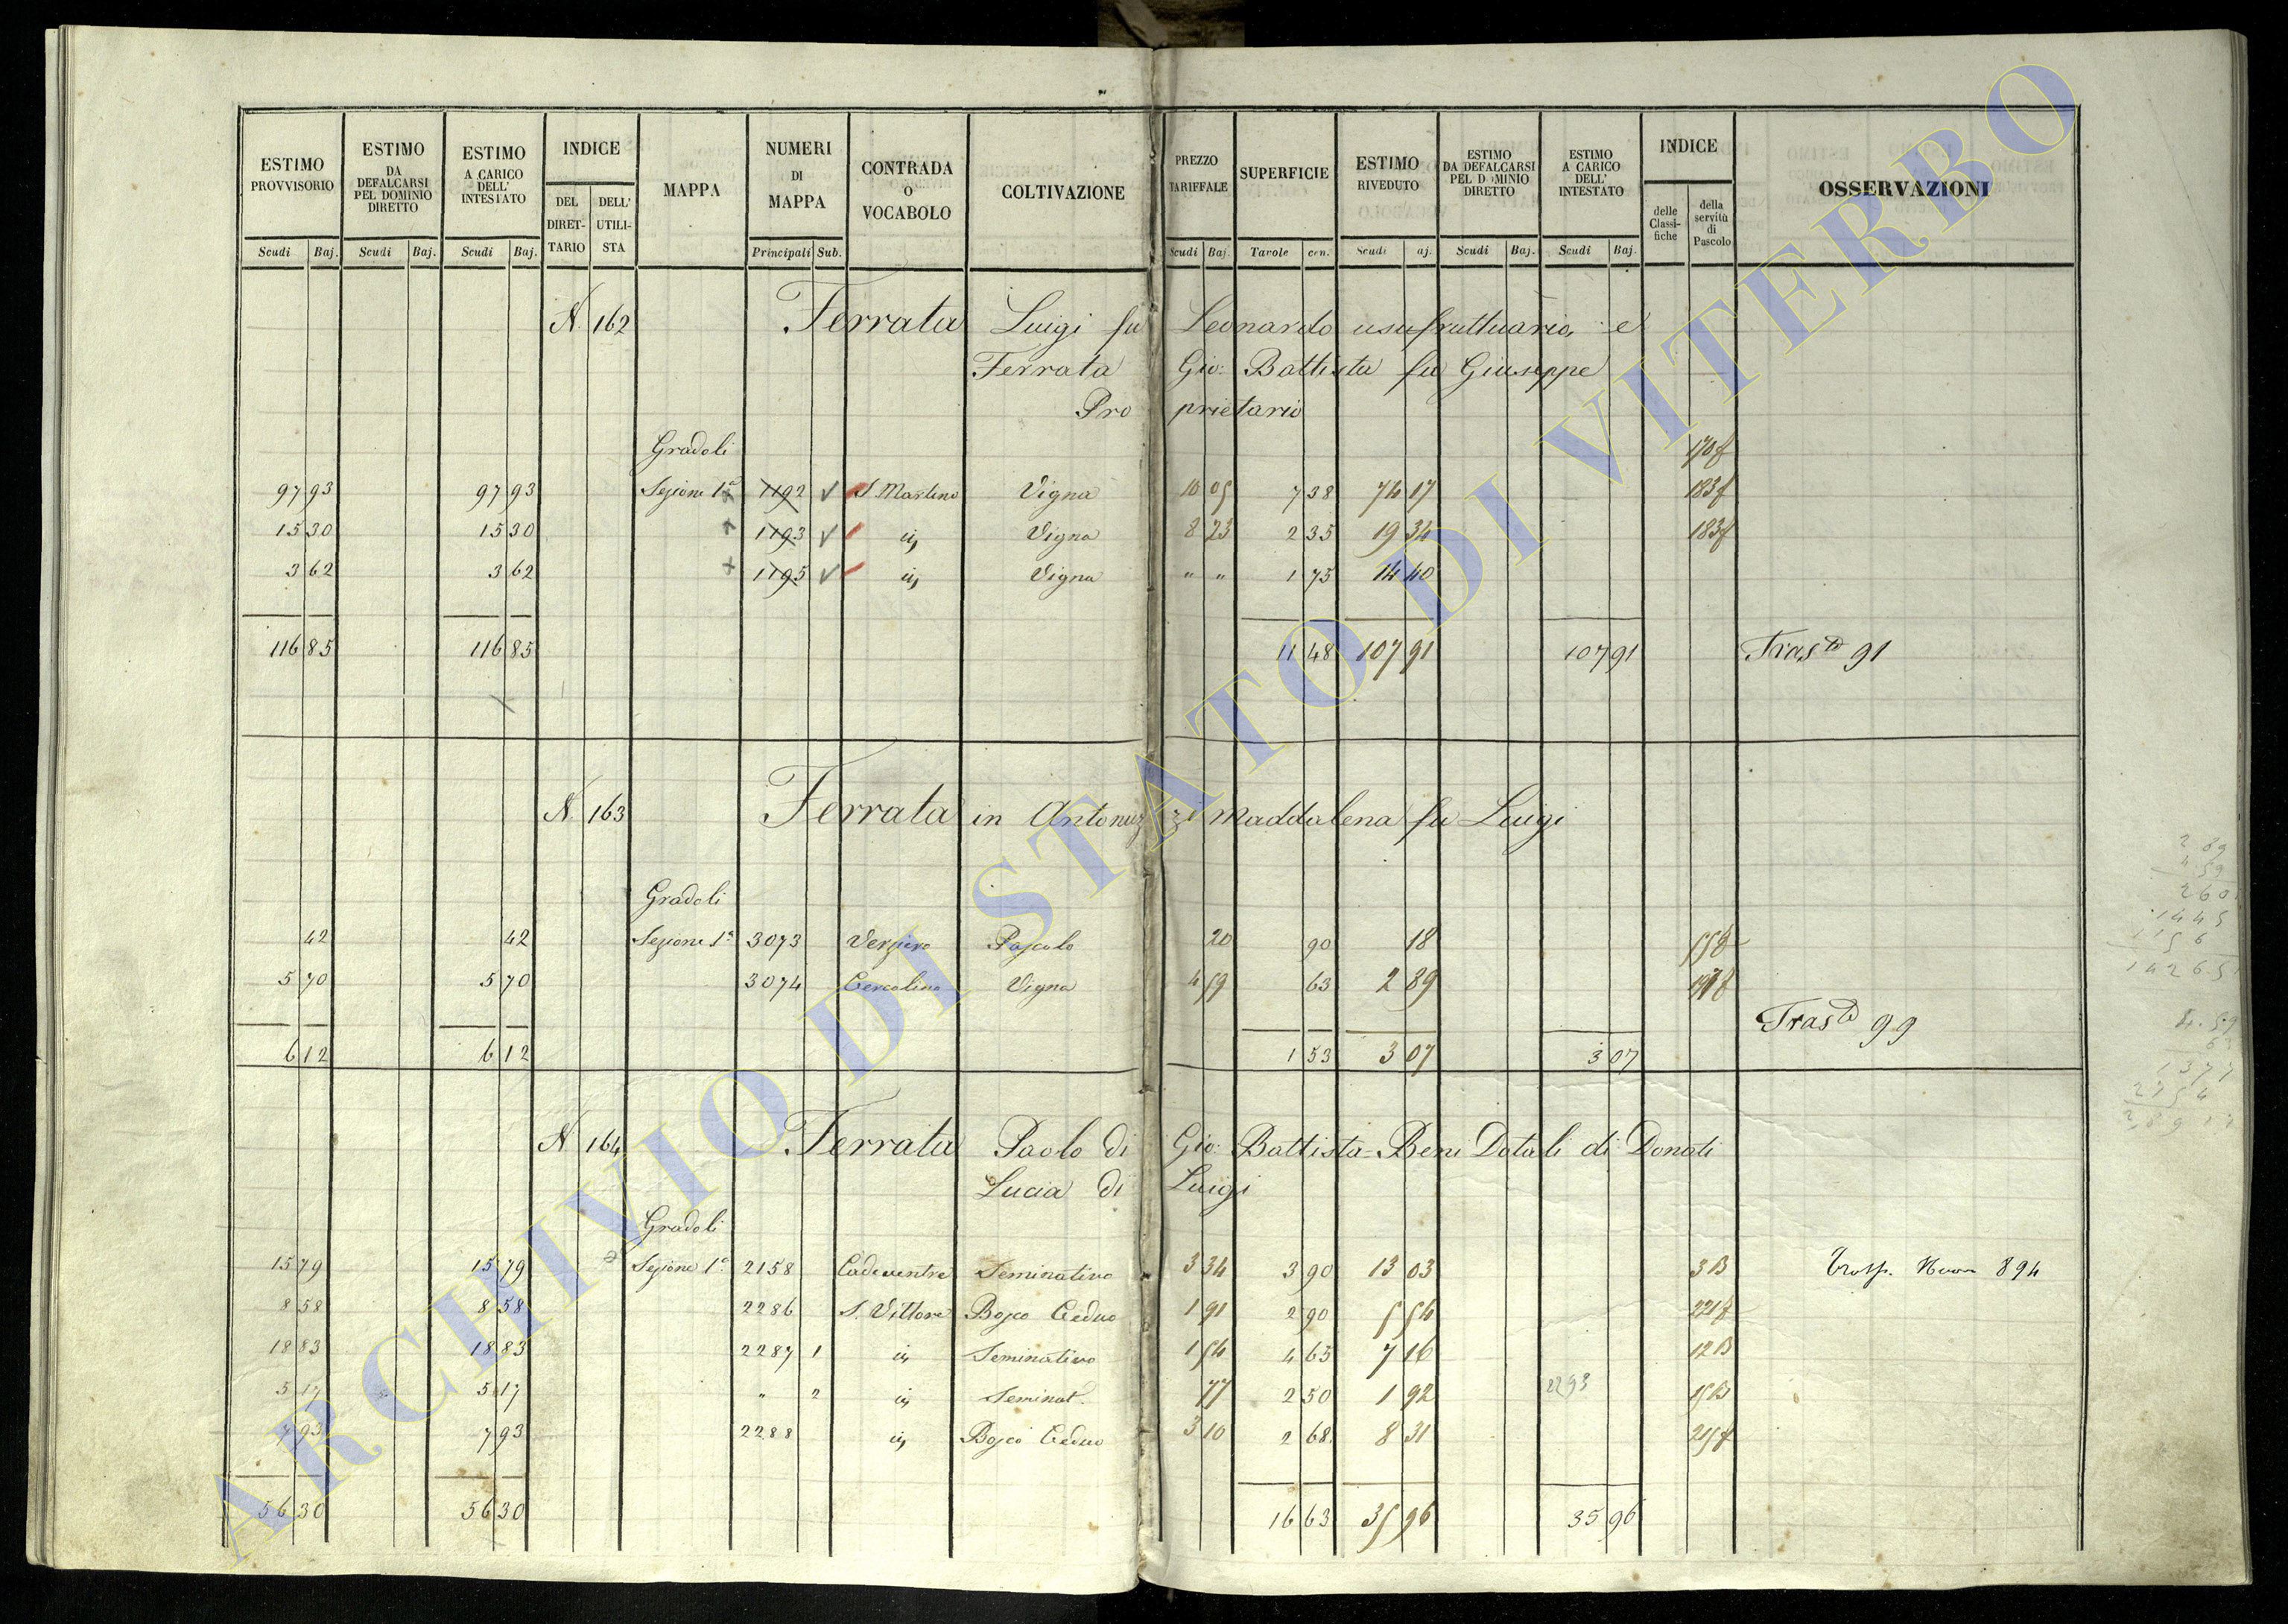 ESTIMO PROVVISORIO | ESTIMO DA DEFALCARSI PEL DOMINIO DIRETTO | ESTIMO A CARICO DELL' INTESTATO | INDICE DEL DIRET-TARIO | DELL' UTILI-STA | MAPPA | NUMERI DI MAPPA | CONTRADA O VOCABOLO | COLTIVAZIONE | PREZZO TARIFFALE | SUPERFICIE | ESTIMO RIVEDUTO | ESTIMO DA DEFALCARSI PEL DOMINIO DIRETTO | ESTIMO A CARICO DELL' INTESTATO | INDICE delle Classi-fiche | della servitù di Pascolo | OSSERVAZIONI
Scudi | Baj. | Scudi | Baj. | Scudi | Baj. | Principali | Sub. | Scudi | Baj. | Tavole | cen. | Scudi | aj. | Scudi | Baj. | Scudi | Baj.
N. 162 Ferrata Luigi fu Leonardo usufruttuario, e
Ferrata Gio: Battista fu Giuseppe
Proprietario
Gradoli
97 93 | 97 93 | Sezione 1ª | 1192 | S. Martino | Vigna | 10 05 | 7 38 | 74 17 | 183f
15 30 | 15 30 | 1193 | iv | Vigna | 8 23 | 2 35 | 19 34 | 183f
3 62 | 3 62 | 1195 | iv | Vigna | " " | 1 75 | 14 40
116 85 | 116 85 | 11 48 | 107 91 | 107 91 | Trasto 91
N. 163 Ferrata in Antonuzzi Maddalena fu Luigi
Gradoli
42 | 42 | Sezione 1ª | 3073 | Verziere | Pascolo | 20 | 90 | 18
5 70 | 5 70 | 3074 | Cercolino | Vigna | 4 59 | 63 | 2 89
Trasto 99
6 12 | 6 12 | 1 53 | 3 07 | 3 07
N. 164 Ferrata Paolo di Gio: Battista = Beni Dotali di Donati
Lucia di Luigi
Gradoli
15 79 | 15 79 | Sezione 1ª | 2158 | Cadeventre | Seminativo | 3 34 | 3 90 | 13 03 | 3B | 894
8 58 | 8 58 | 2286 | S. Vittore | Bosco Ceduo | 1 91 | 2 90 | 5 54 | 221f
18 83 | 18 83 | 2287 | 1 | iv | Seminativo | 1 54 | 4 65 | 7 16 | 12B
5 17 | 5 17 | " | 2 | iv | Seminat. | 77 | 2 50 | 1 92 | 2293 | 15B
7 93 | 7 93 | 2288 | iv | Bosco Ceduo | 3 10 | 2 68 | 8 31 | 215f
56 30 | 56 30 | 16 63 | 35 96 | 35 96
ARCHIVIO DI STATO DI VITERBO